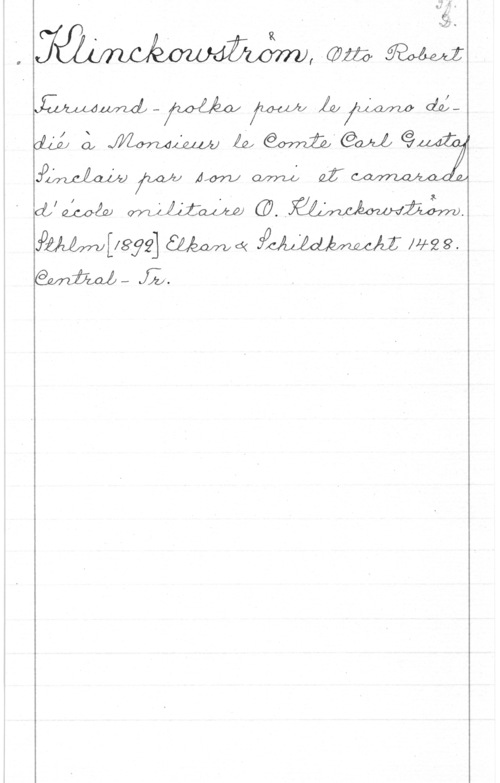 Klinckowström, Otto Robert
Furusund - polka pour le piano dé-
dié à Monsieur le Comte Carl Gustaf
Sinclair par son ami et camarade
d'école militaire O. Klinckowström.
Sthlm [1892] Elkan & Schildknecht 1428.
Central - Tr.